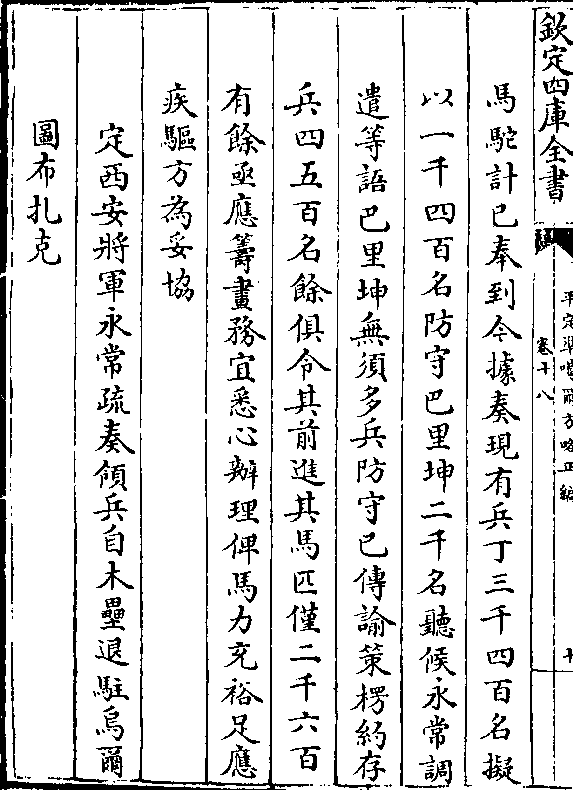 欽定四庫全書
平定準噶爾方略正編
卷十八
馬駝計已奉到今據奏現有兵丁三千四百名擬
以一千四百名防守巴里坤二千名聽候永常調
遣等語巴里坤無須多兵防守已傳諭策楞約存
兵四五百名餘俱令其前進其馬匹僅二千六百
有餘亟應籌畫務宜悉心辦理俾馬力充裕足應
疾驅方為妥協
定西安將軍永常疏奏領兵自木壘退駐烏爾
圖布扎克